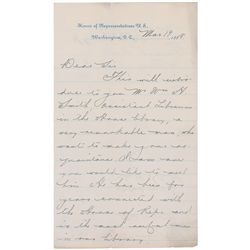 House of Representatives U.S.
Washington, D.C.
Mar 19,
Dear Sir
This will intro-
duce to you Mr Wm H.
Smith Assistant Librarian
in the House library, a
very remarkable man, who
wants to make your ac
quaintance. I am sure
you would like to meet
him. He has been for
years connected with
the House of Reps and
is the most useful man
in our Library